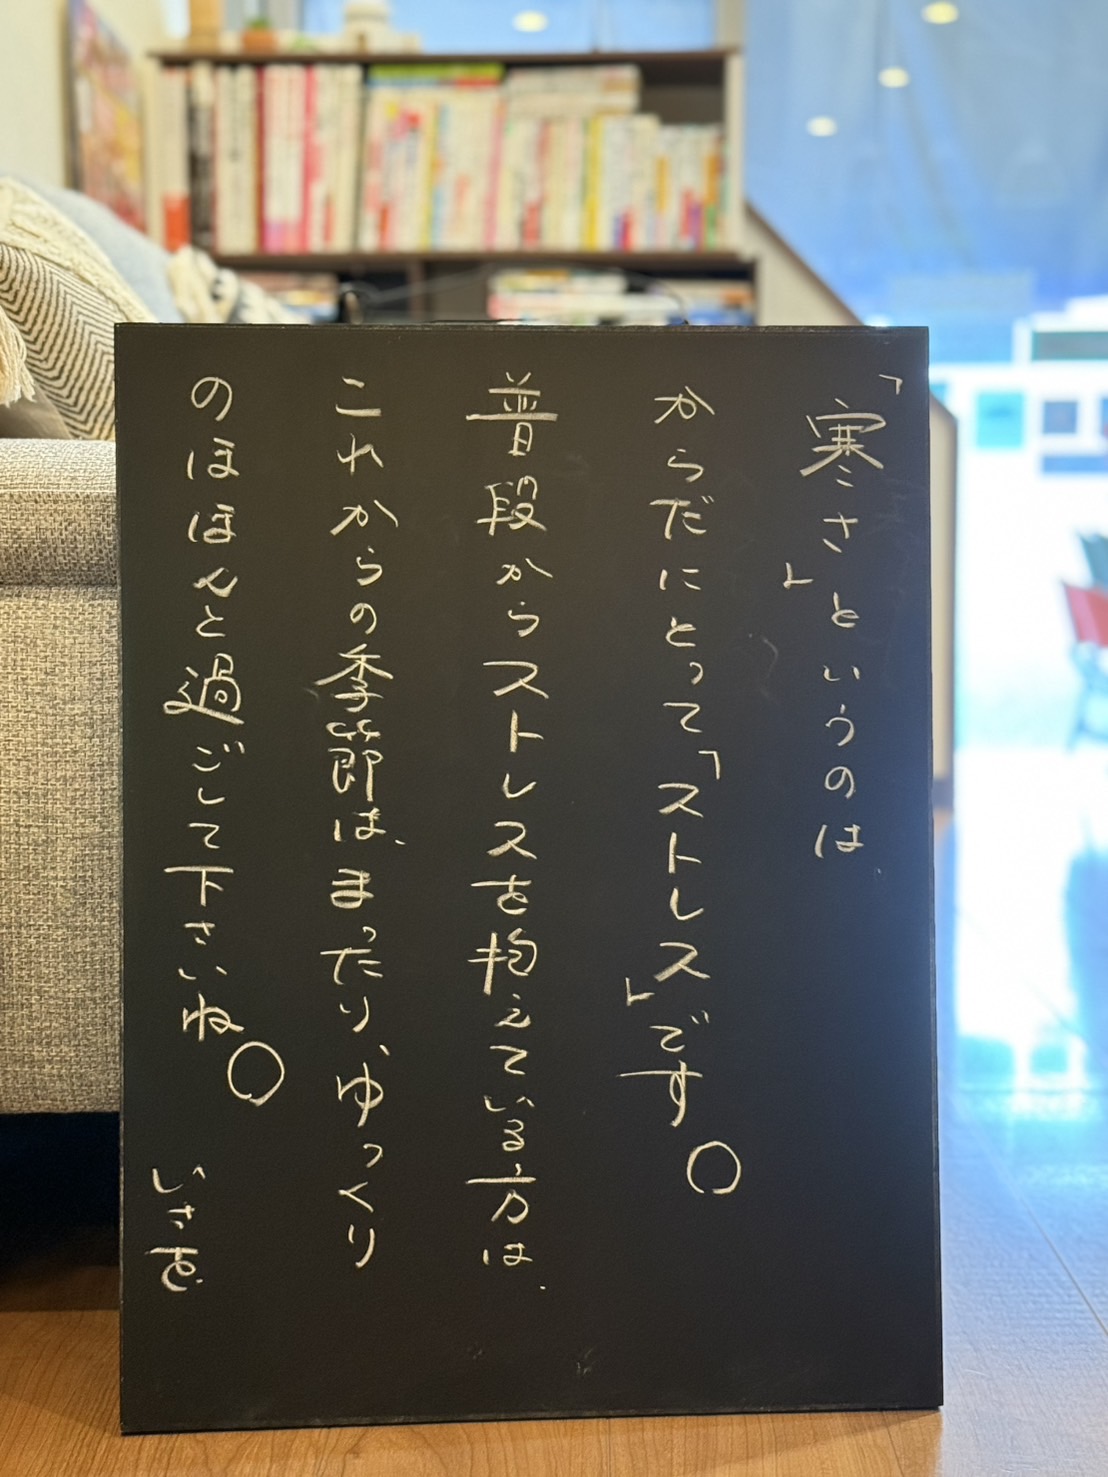 「寒さ」というのは、
からだにとって「ストレス」です。
普段からストレスを抱えている方は、
これからの季節は、まったり、ゆっくり
のほほんと過ごして下さいね。
いさを